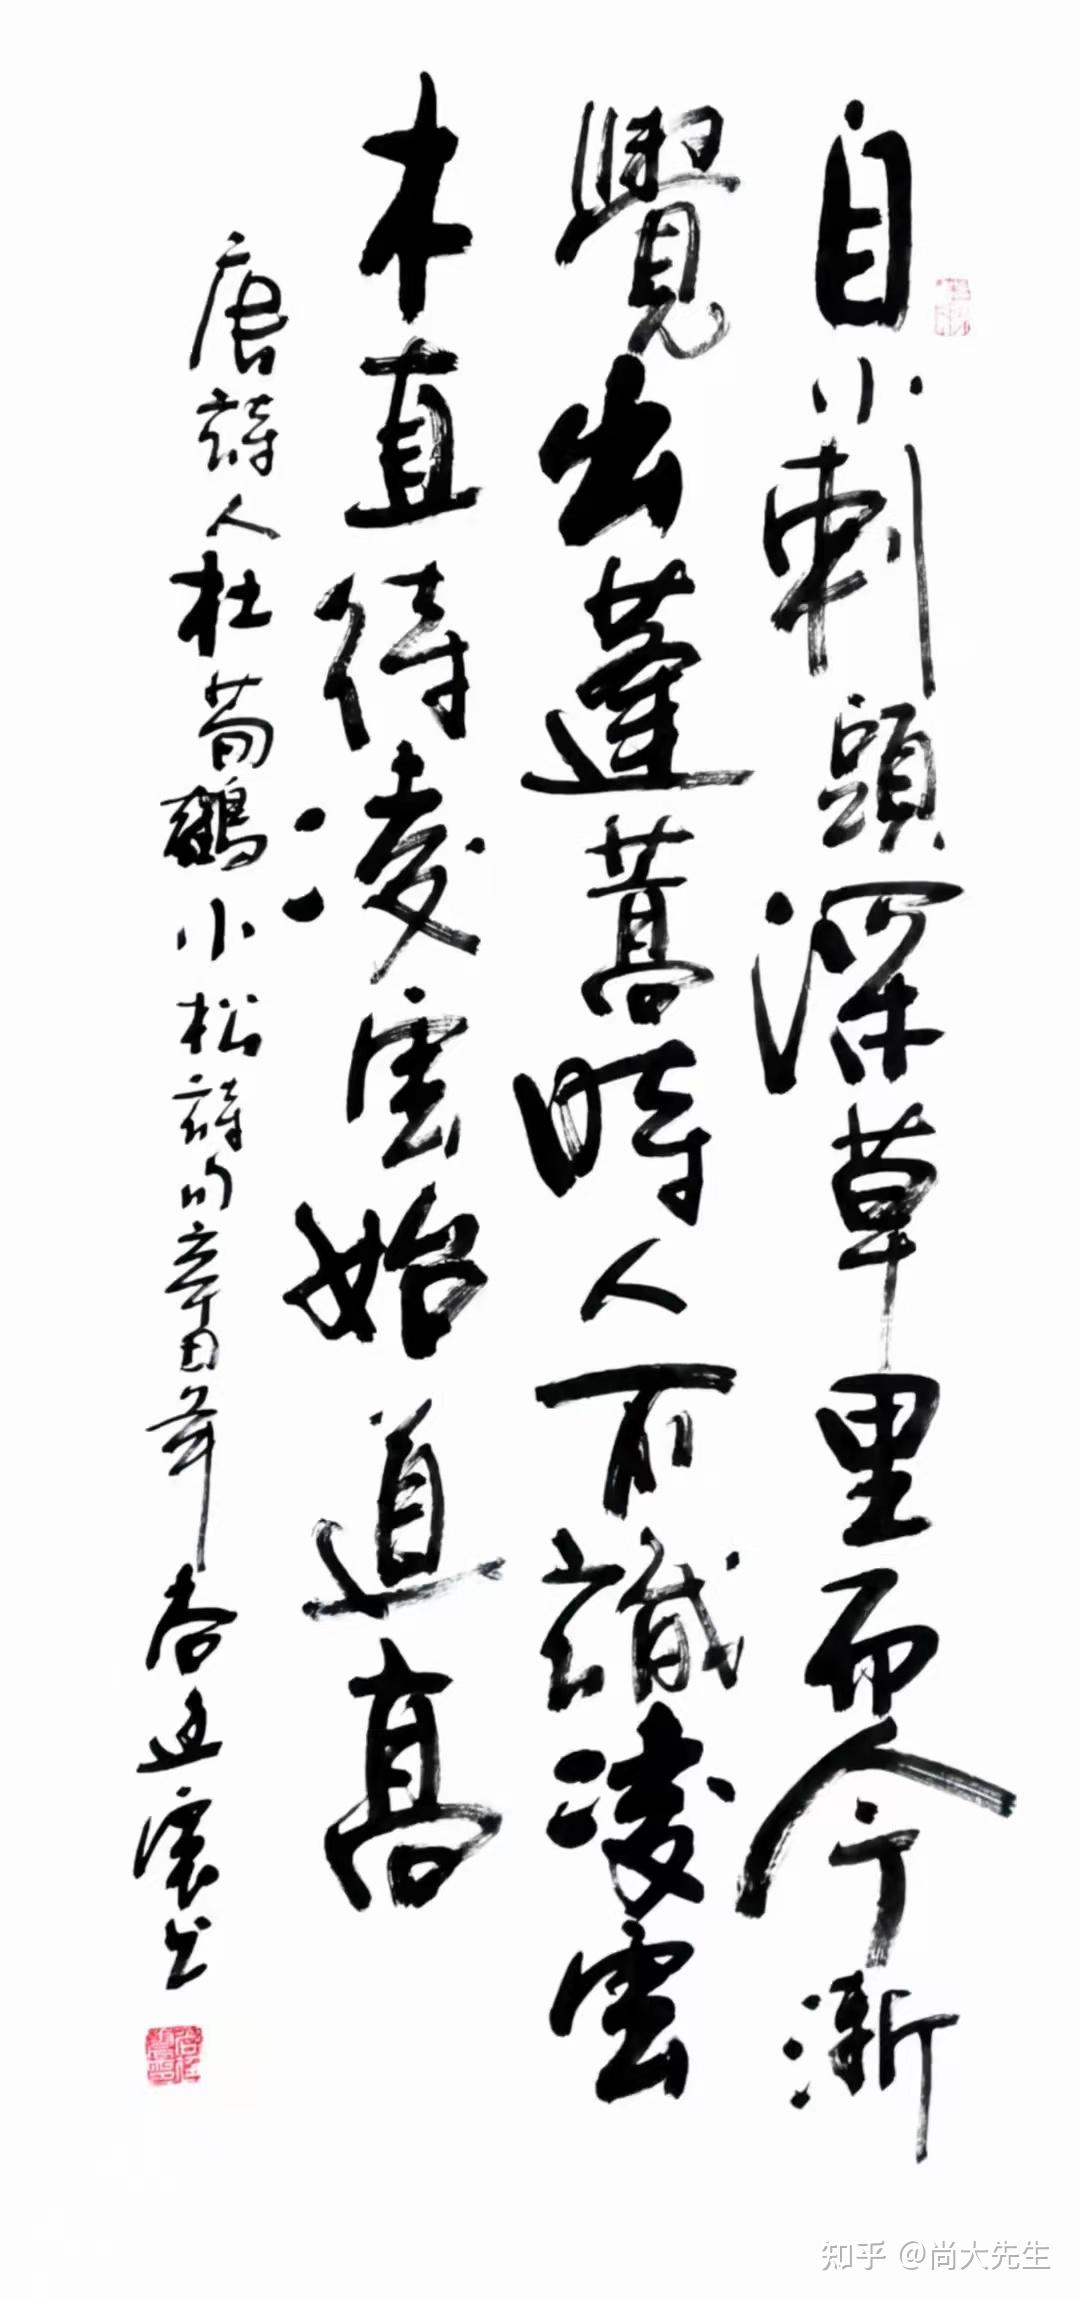 自小刺頭深草里而今漸
覺出蓬蒿時人不識凌雲
木直待凌雲始道高
唐詩人杜荀鶴小松詩句辛丑年尚廷襄書
知乎 @尚大先生